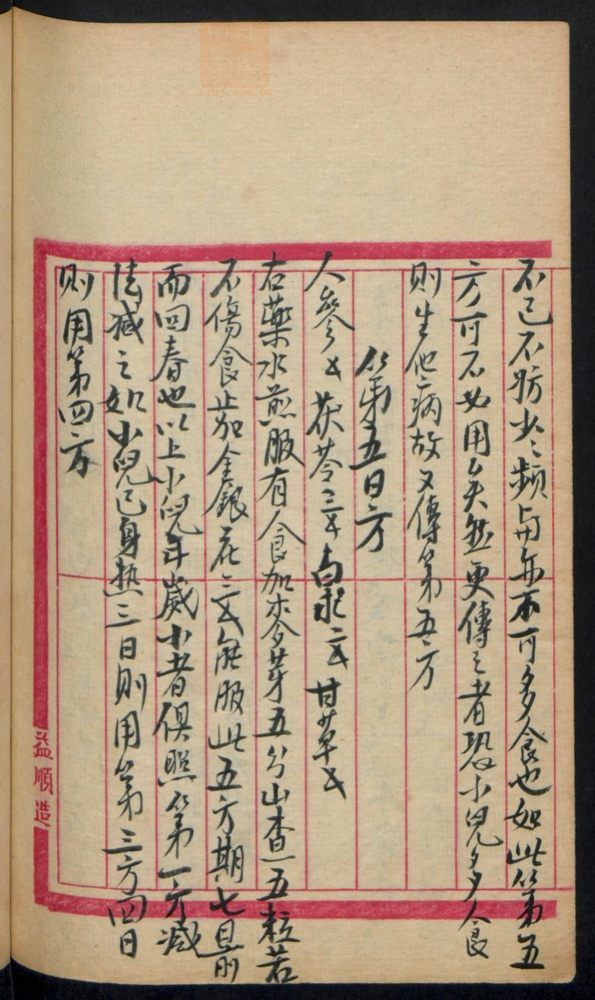 不已不妨少々頻与亦不可多食也如此第五
方可不必用矣然更傳之者恐小兒多食
則生他病故又傳第五方
第五日方
人參 茯苓三 白朮二 甘草
右藥水煎服有食加麥芽五分山查五粒若
不傷食止加金銀花三 能服此五方期七日前
而回春也以上小兒年歲小者俱照第一方減
法減之如小兒已身熱三日則用第三方四日
則用第四方
益順造